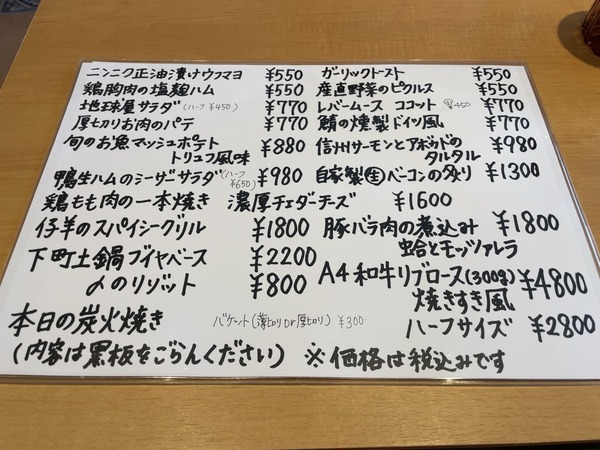 ニンニク正油漬けウフマヨ ¥550
鶏胸肉の塩麹ハム ¥550
地球屋サラダ(ハーフ ¥450) ¥770
厚切りお肉のパテ ¥770
旬のお魚マッシュポテト
トリュフ風味 ¥880
鴨生ハムのシーザーサラダ(ハーフ ¥650) ¥980
鶏もも肉の一本焼き 濃厚チェダーチーズ ¥1600
仔羊のスパイシーグリル ¥1800
下町土鍋ブイヤベース ¥2200
〆のリゾット ¥800
本日の炭火焼き
(内容は黒板をごらんください)
ガーリックトースト ¥550
産直野菜のピクルス ¥550
レバームース ココット ¥450 ¥770
鯖の燻製ドイツ風 ¥770
信州サーモンとアボカドの
タルタル ¥980
自家製生ベーコンの炙り ¥1300
豚バラ肉の煮込み ¥1800
蛤とモッツァレラ
A4和牛リブロース(300g) ¥4800
焼きすき風
ハーフサイズ ¥2800
バケット(薄切りor厚切り) ¥300
※価格は税込みです